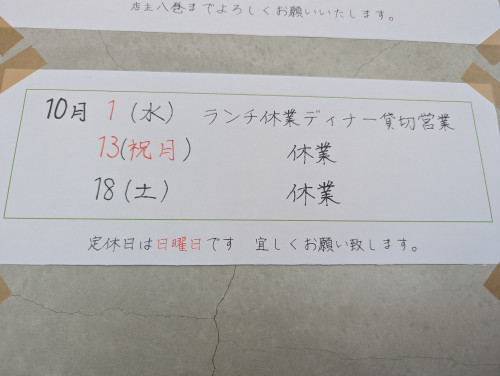 店主八巻までよろしくお願いいたします。
10月 1 (水) ランチ休業ディナー貸切営業
13(祝月) 休業
18(土) 休業
定休日は日曜日です 宜しくお願い致します。